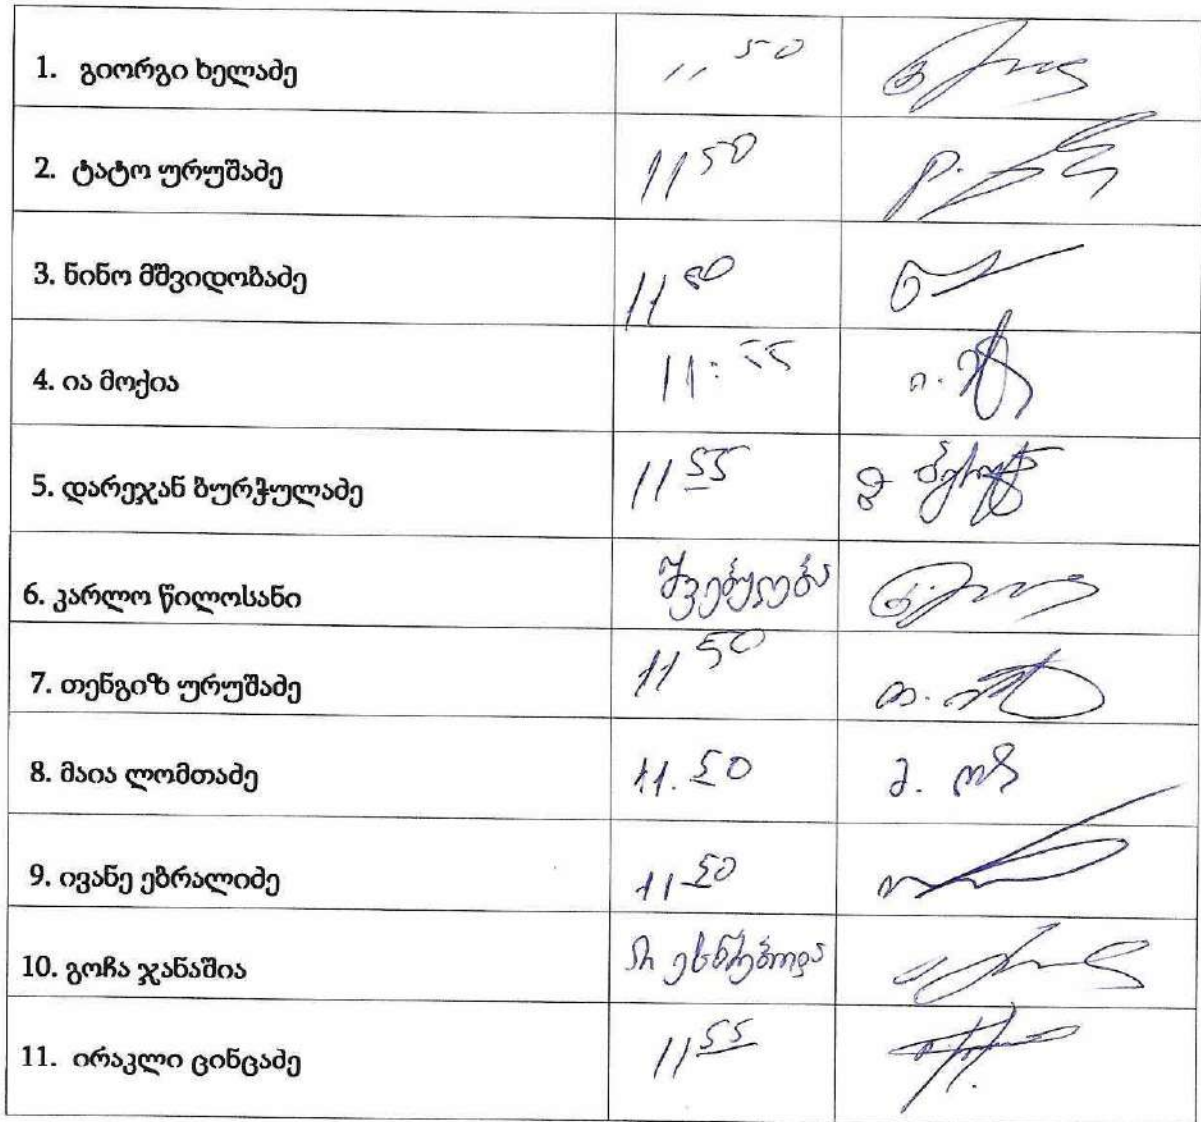 1. გიორგი ხელაძე 11 50
2. ტატო ურუშაძე 11 50
3. ნინო მშვიდობაძე 11 50
4. ია მოქია 11:55
5. დარეჯან ბურჭულაძე 11 55
6. კარლო წილოსანი შვებულება
7. თენგიზ ურუშაძე 11 50
8. მაია ლომთაძე 11.50
9. ივანე ებრალიძე 11 50
10. გოჩა ჯანაშია არ ესწრებოდა
11. ირაკლი ცინცაძე 11 55